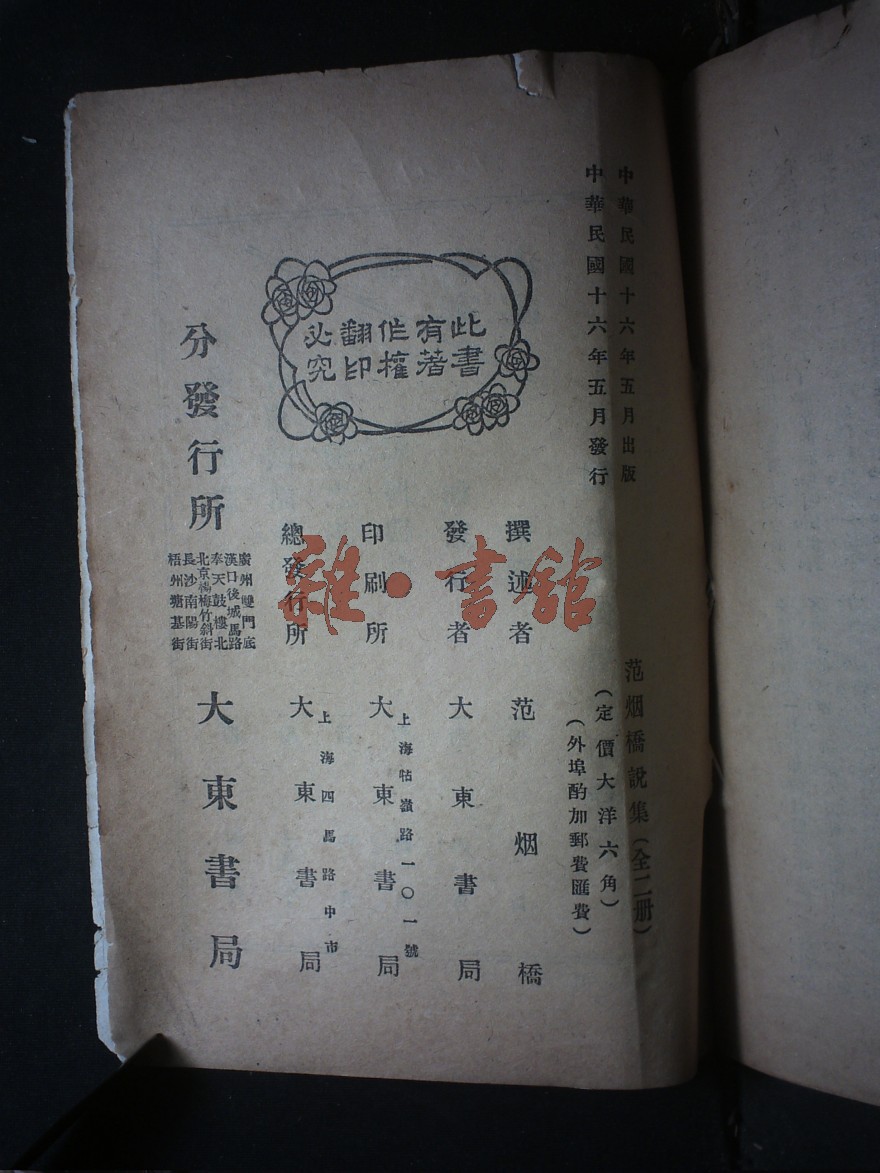 中華民國十六年五月出版
中華民國十六年五月發行
范烟橋說集(全二册)
(定價大洋六角)
(外埠酌加郵費匯費)
此書
有著
作權
翻印
必究
撰述者 范烟橋
發行者 大東書局
印刷所 上海牯嶺路一〇一號
大東書局
總發行所 上海四馬路中市
大東書局
分發行所
廣州雙門底
漢口後城馬路
奉天鼓樓北
北京楊梅竹斜街
長沙南陽街
梧州塘基街
大東書局
雜·書館